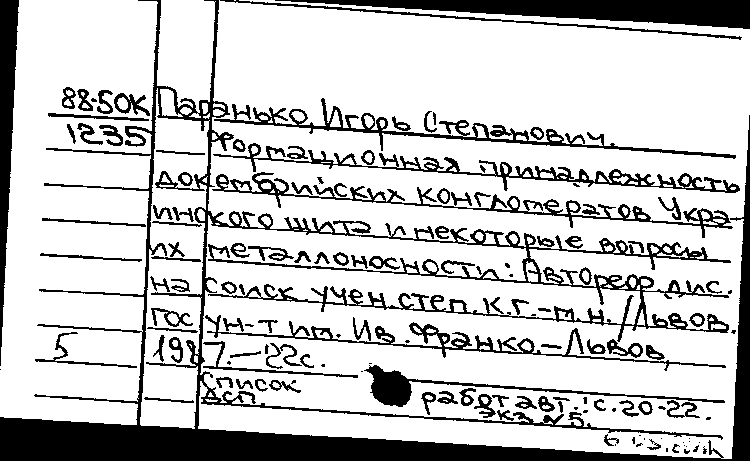 88-50К Паранько, Игорь Степанович.
1235 Формационная принадлежность
докембрийских конгломератов Укра-
инского щита и некоторые вопросы
их металлоносности: Автореф. дис.
на соиск учен. степ. к.г.-м.н. / Львов.
гос ун-т им. Ив. Франко. - Львов,
5 1987. - 22с.
Список работ авт.: с. 20-22.
ДСП. Экз. № 5.